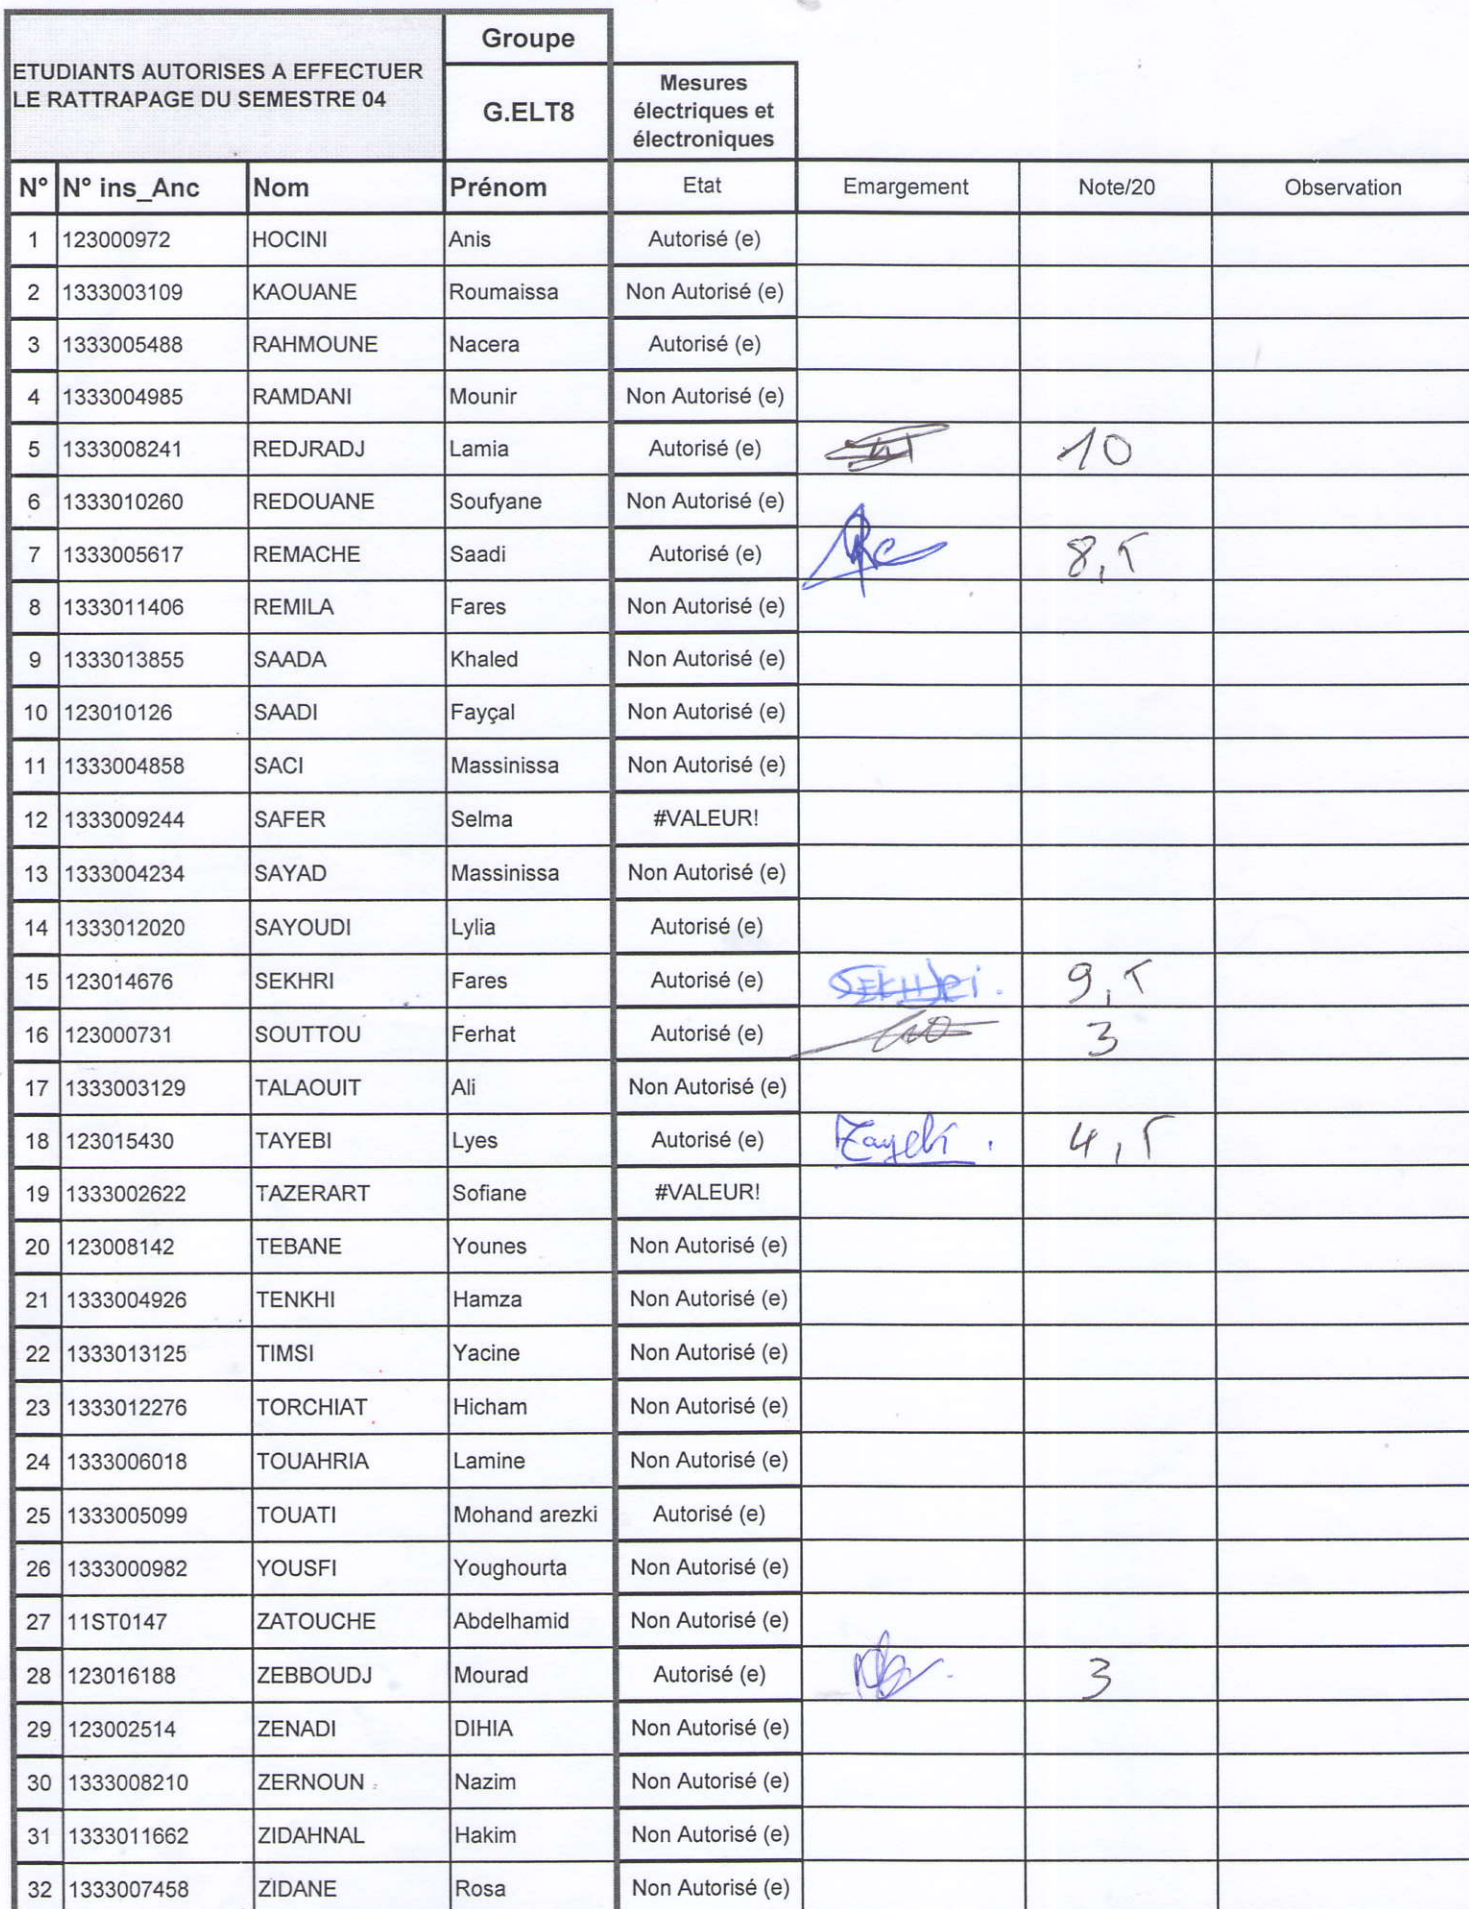 Groupe
ETUDIANTS AUTORISES A EFFECTUER
LE RATTRAPAGE DU SEMESTRE 04
G.ELT8
Mesures
électriques et
électroniques
N° N° ins_Anc Nom Prénom Etat Emargement Note/20 Observation
1 123000972 HOCINI Anis Autorisé (e)
2 1333003109 KAOUANE Roumaissa Non Autorisé (e)
3 1333005488 RAHMOUNE Nacera Autorisé (e)
4 1333004985 RAMDANI Mounir Non Autorisé (e)
5 1333008241 REDJRADJ Lamia Autorisé (e) 10
6 1333010260 REDOUANE Soufyane Non Autorisé (e)
7 1333005617 REMACHE Saadi Autorisé (e) 8,5
8 1333011406 REMILA Fares Non Autorisé (e)
9 1333013855 SAADA Khaled Non Autorisé (e)
10 123010126 SAADI Fayçal Non Autorisé (e)
11 1333004858 SACI Massinissa Non Autorisé (e)
12 1333009244 SAFER Selma #VALEUR!
13 1333004234 SAYAD Massinissa Non Autorisé (e)
14 1333012020 SAYOUDI Lylia Autorisé (e)
15 123014676 SEKHRI Fares Autorisé (e) SEKHRi. 9,5
16 123000731 SOUTTOU Ferhat Autorisé (e) 3
17 1333003129 TALAOUIT Ali Non Autorisé (e)
18 123015430 TAYEBI Lyes Autorisé (e) Tayebi. 4,5
19 1333002622 TAZERART Sofiane #VALEUR!
20 123008142 TEBANE Younes Non Autorisé (e)
21 1333004926 TENKHI Hamza Non Autorisé (e)
22 1333013125 TIMSI Yacine Non Autorisé (e)
23 1333012276 TORCHIAT Hicham Non Autorisé (e)
24 1333006018 TOUAHRIA Lamine Non Autorisé (e)
25 1333005099 TOUATI Mohand arezki Autorisé (e)
26 1333000982 YOUSFI Youghourta Non Autorisé (e)
27 11ST0147 ZATOUCHE Abdelhamid Non Autorisé (e)
28 123016188 ZEBBOUDJ Mourad Autorisé (e) 3
29 123002514 ZENADI DIHIA Non Autorisé (e)
30 1333008210 ZERNOUN Nazim Non Autorisé (e)
31 1333011662 ZIDAHNAL Hakim Non Autorisé (e)
32 1333007458 ZIDANE Rosa Non Autorisé (e)